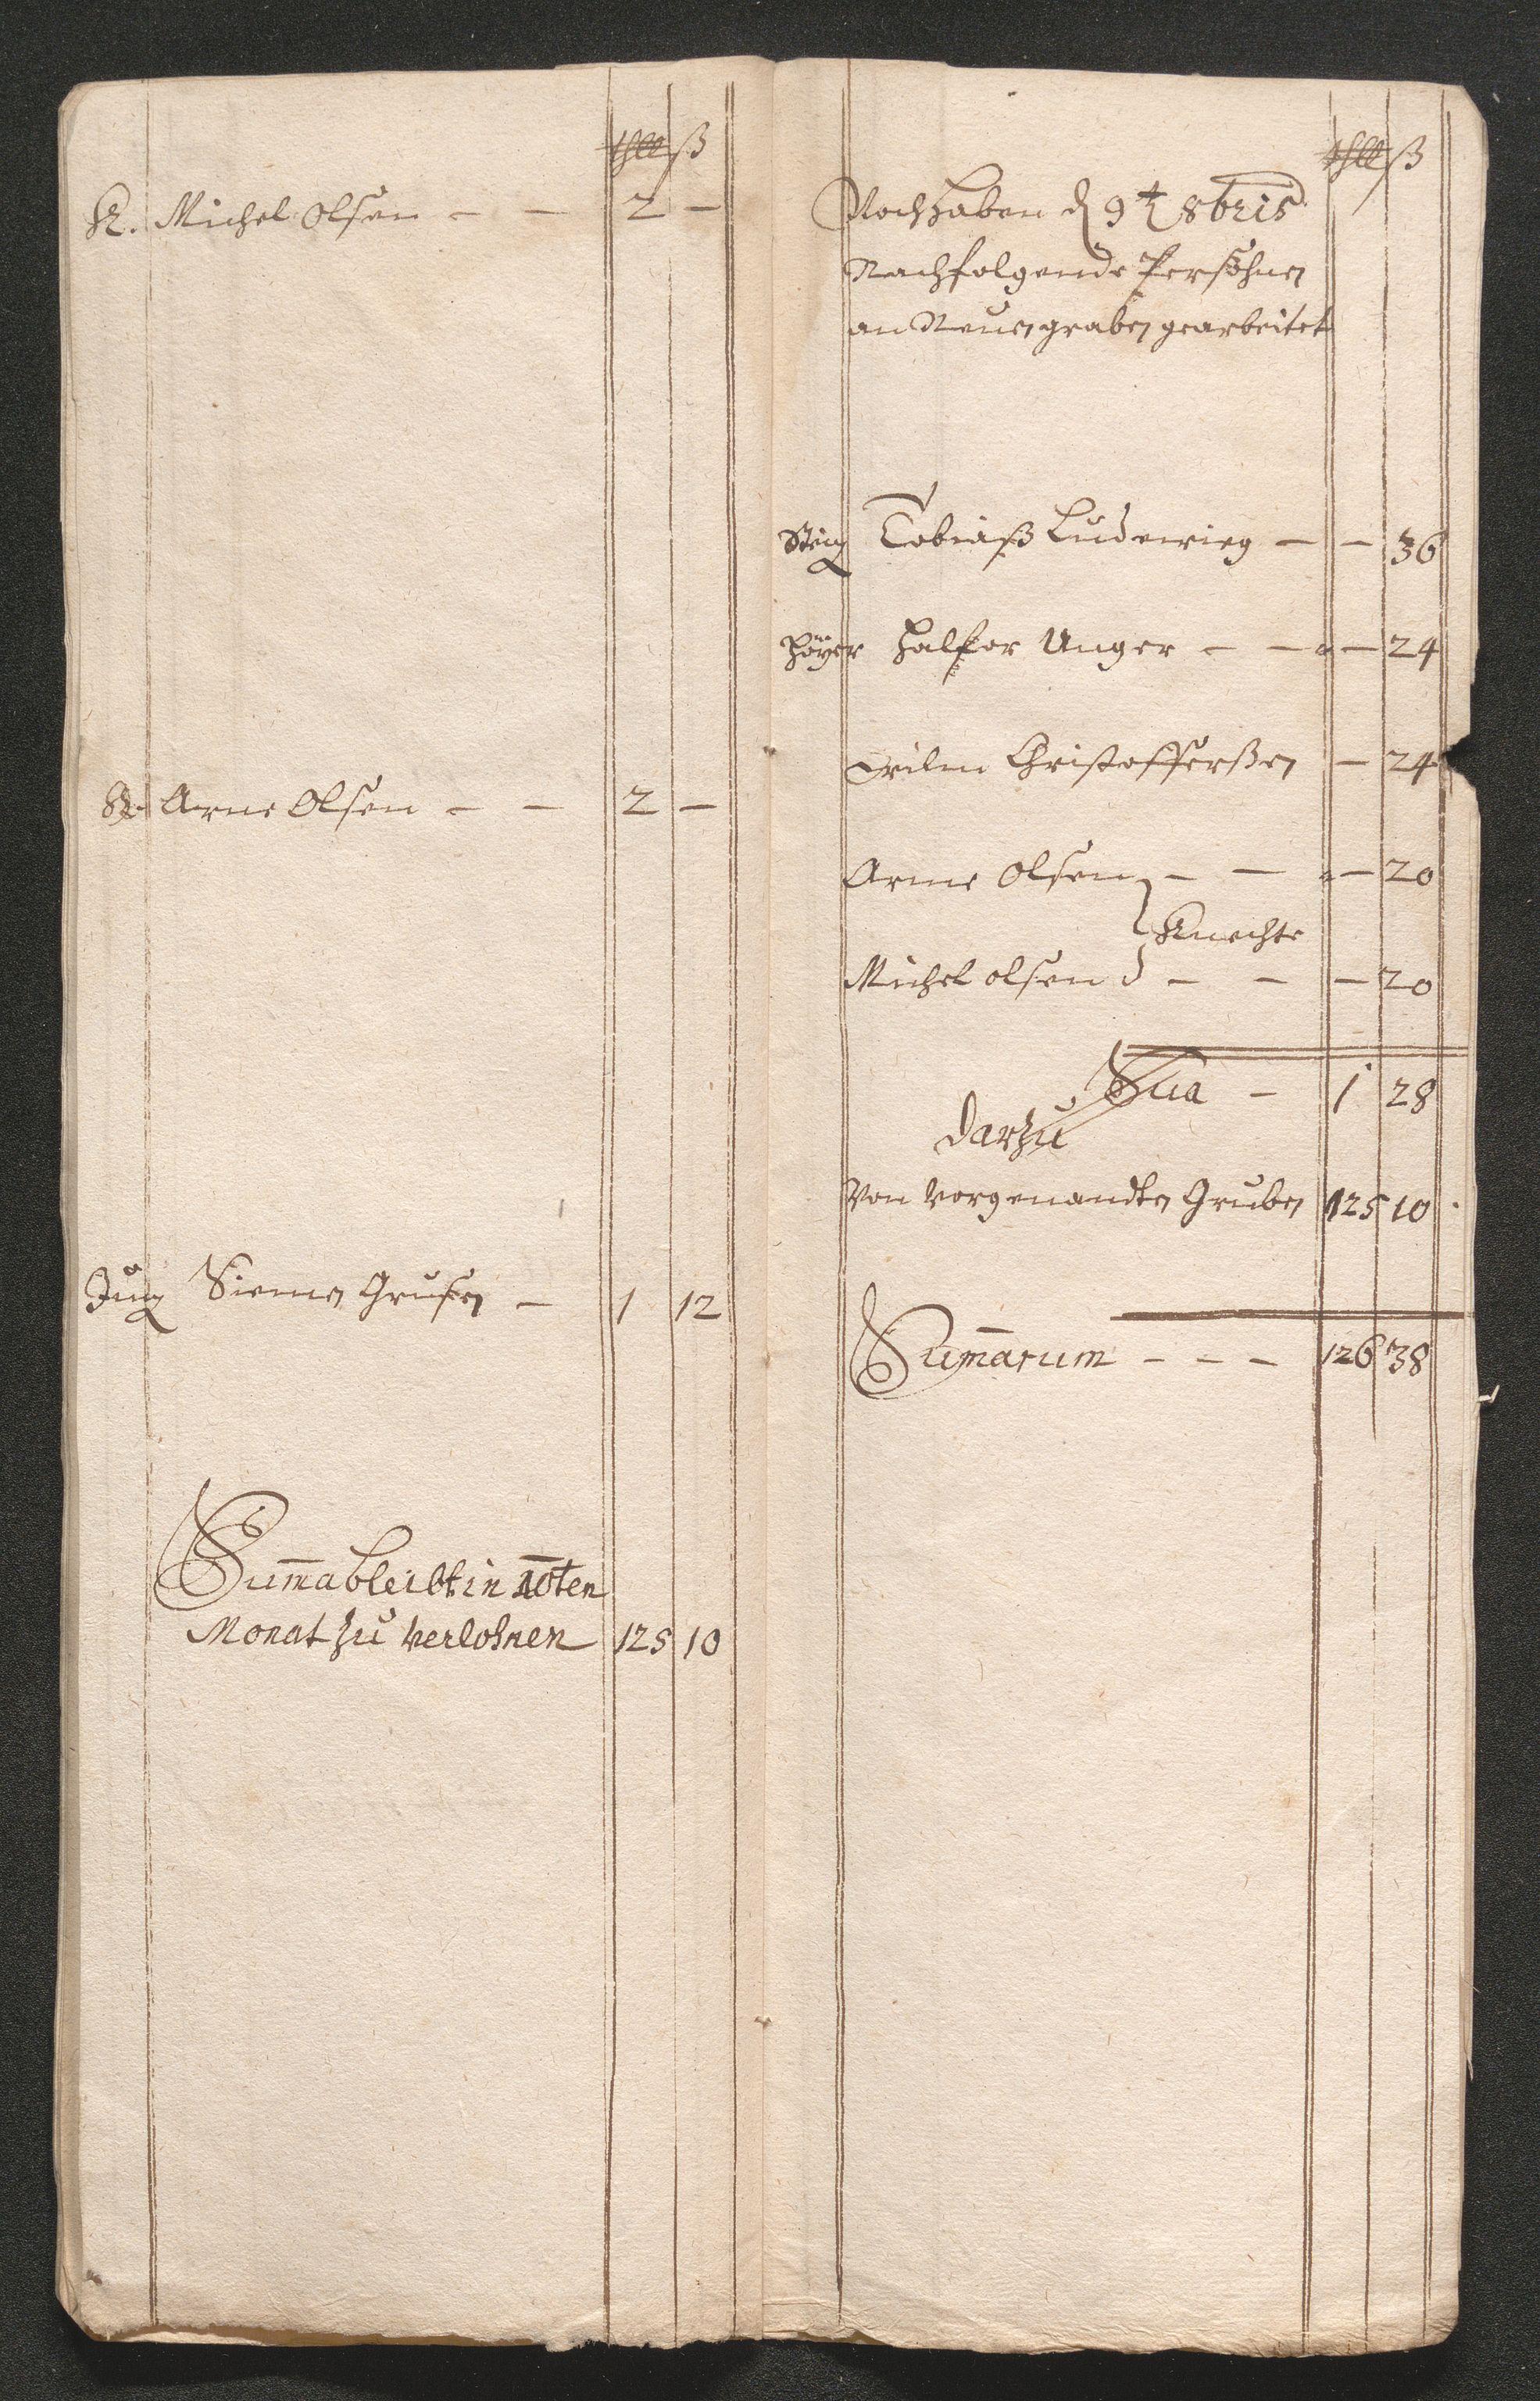 thll ß
K. Michel Olsen - - 2 -
K. Arne Olsen - - 2 -
Jung Siemen Grusen - 1 12
Sum̄a bleibt in 10ten
Monat zu verlohnen 125 10
thll ß
Noch haben d 9t 8bris
Nachfolgende Persohnen
an Neuen graben gearbeitet
Steig Tobiaß Ludewieg - - 36
Halfor Unger - - - 24
Christofferßen - 24
Arne Olsen - - - 20
Knechte
Michel olsen - - - 20
Sua - 1 28
darzu
Von vorgenandten Gruben 125 10
Sum̄arum - - - 126 38